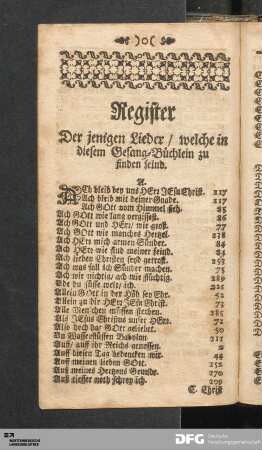 )o(
Register
Der jenigen Lieder / welche in
diesem Gesang-Büchlein zu
finden seind.
A.
ACh bleib bey uns HErr JEsu Christ. 217
Ach bleib mit deiner Gnade. 217
Ach GOtt vom Himmel sieh. 85
Ach GOtt wie lang vergissest. 86
Ach GOtt und HErr / wie groß. 77
Ach GOtt wie manches Hertzel. 278
Ach HErr mich armen Sünder. 84
Ach HErr wie sind meiner seind. 84
Ach lieben Christen seyd getrost. 253
Ach was soll ich Sünder machen. 75
Ach wie nichtig / ach wie flüchtig. 289
Ade du süsse welt / ich.
Allein GOtt in der Höh sey Ehr. 52
Allein zu dir HErr JEsu Christ. 71
Alle Menschen müssen sterben. 285
Als JEsus Christus unser HErr. 72
Also hoch hat GOtt geliebet. 50
An Wasserflüssen Babylon. 211
Auff / auff ihr Reichs genossen. 2
Auff diesen Tag bedencken wir. 44
Auff meinen lieben GOtt. 252
Auß meines Hertzens Grunde. 270
Auß tieffer noth schrey ich. 209
C. Christ
WÜRTTEMBERGISCHE
LANDESBIBLIOTHEK
DFG
Deutsche
Forschungsgemeinschaft